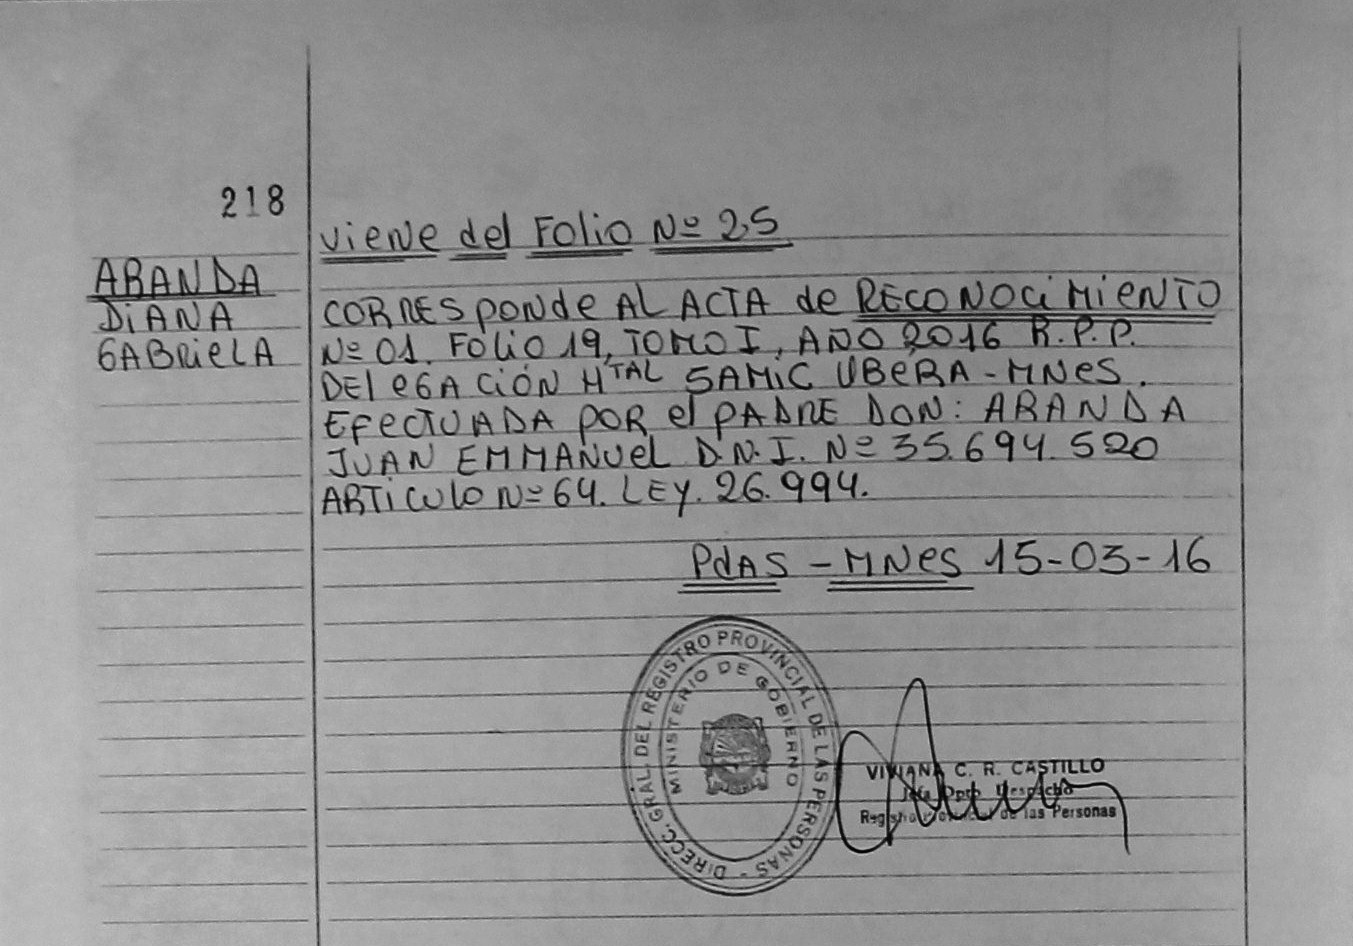 218
ARANDA
DiANA
GABRIELA
Viene del Folio Nº 25
CORRESponde AL ACTA de RECONOCiMiENTO
Nº 01. FOLiO 19, TOMO I, AÑO 2016 R.P.P.
DElEGACIÓN HTAL SAMIC UBERA-MNES.
EFECTUADA POR el PADRE DON: ARANDA
JUAN EMMANUEL D.N.I. Nº 35.694.520
ARTiCULO Nº 64. LEY. 26.994.
PdAS - MNES 15-03-16
DIRECC. GRAL. DEL REGISTRO PROVINCIAL DE LAS PERSONAS -
MINISTERIO DE GOBIERNO
VIVIANA C. R. CASTILLO
Jefa Dpto. Despacho
Registro Provincial de las Personas